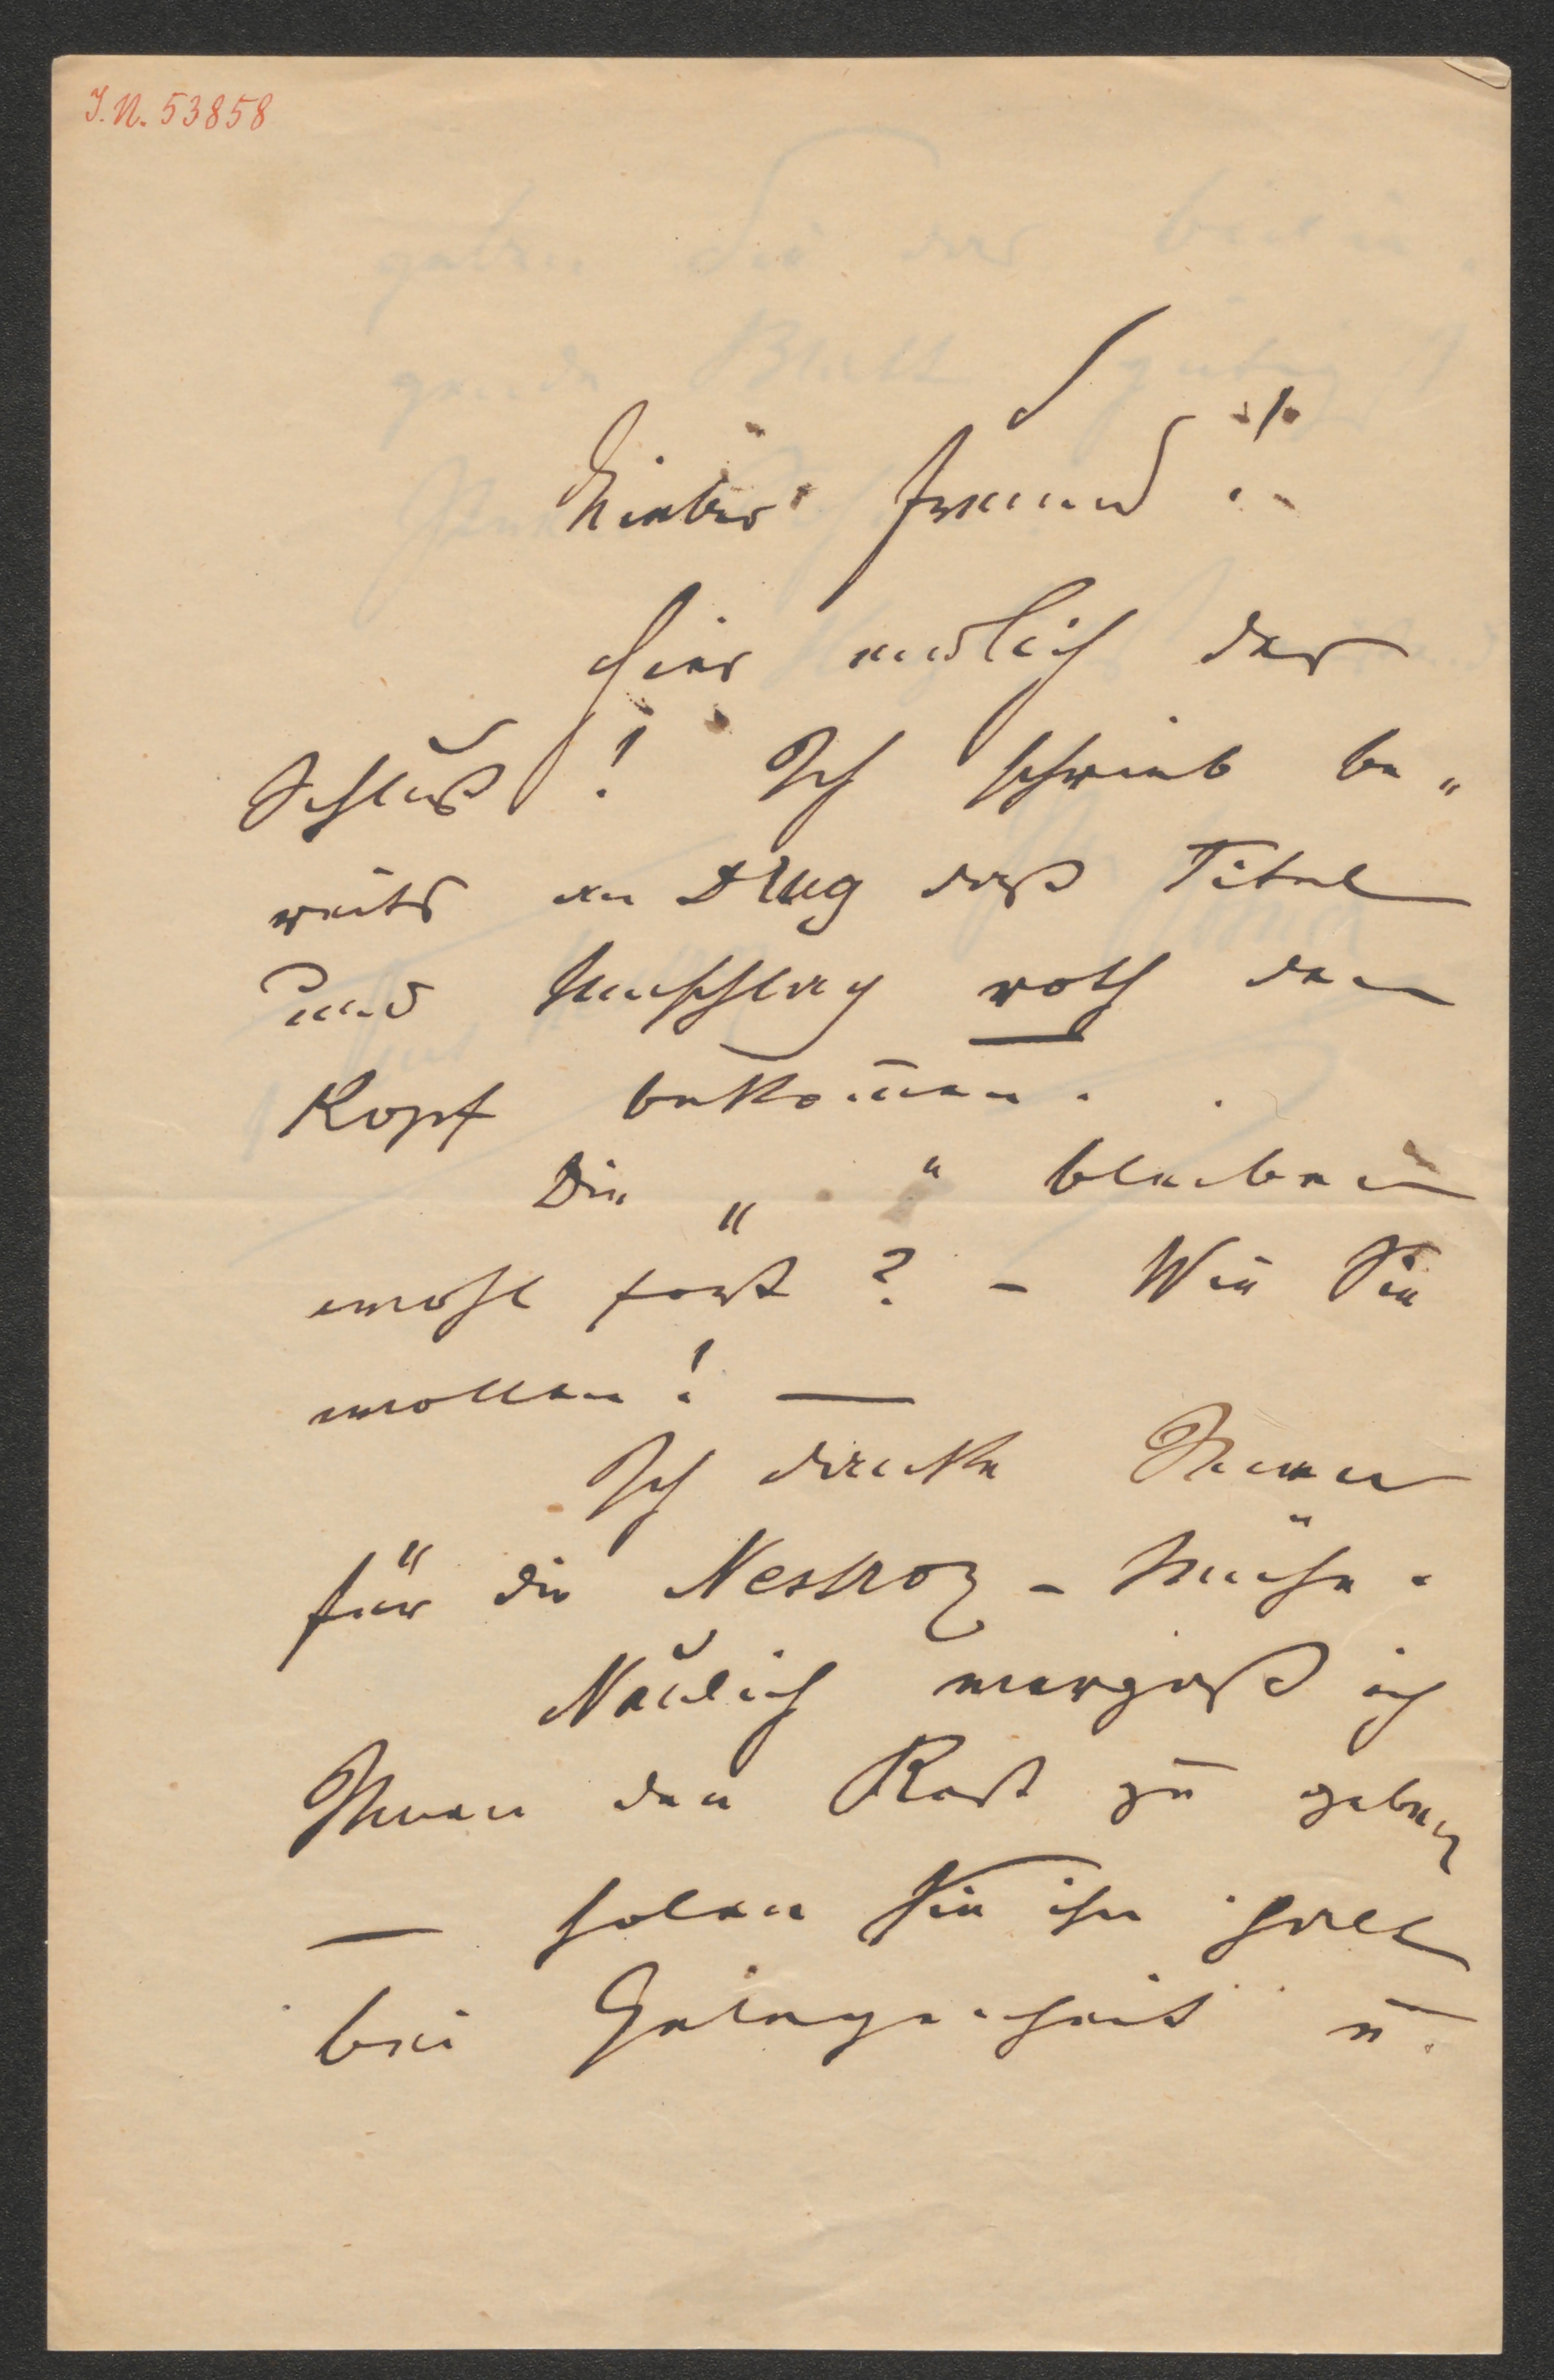 I.N. 53858
Lieber Freund!
Hier endlich der
Schluß! Ich schrieb be„
reits an Klug daß Titel
und Umschlag roth den
Kopf bekom̄en.
Die „ “ bleiben
wohl fort? – Wie Sie
wollen! —
Ich danke Ihnen
für die Nestroy-Mühe.
Neulich vergaß ich
Ihnen den Rest zu geben
— holen Sie ihn halt
bei Gelegenheit u.